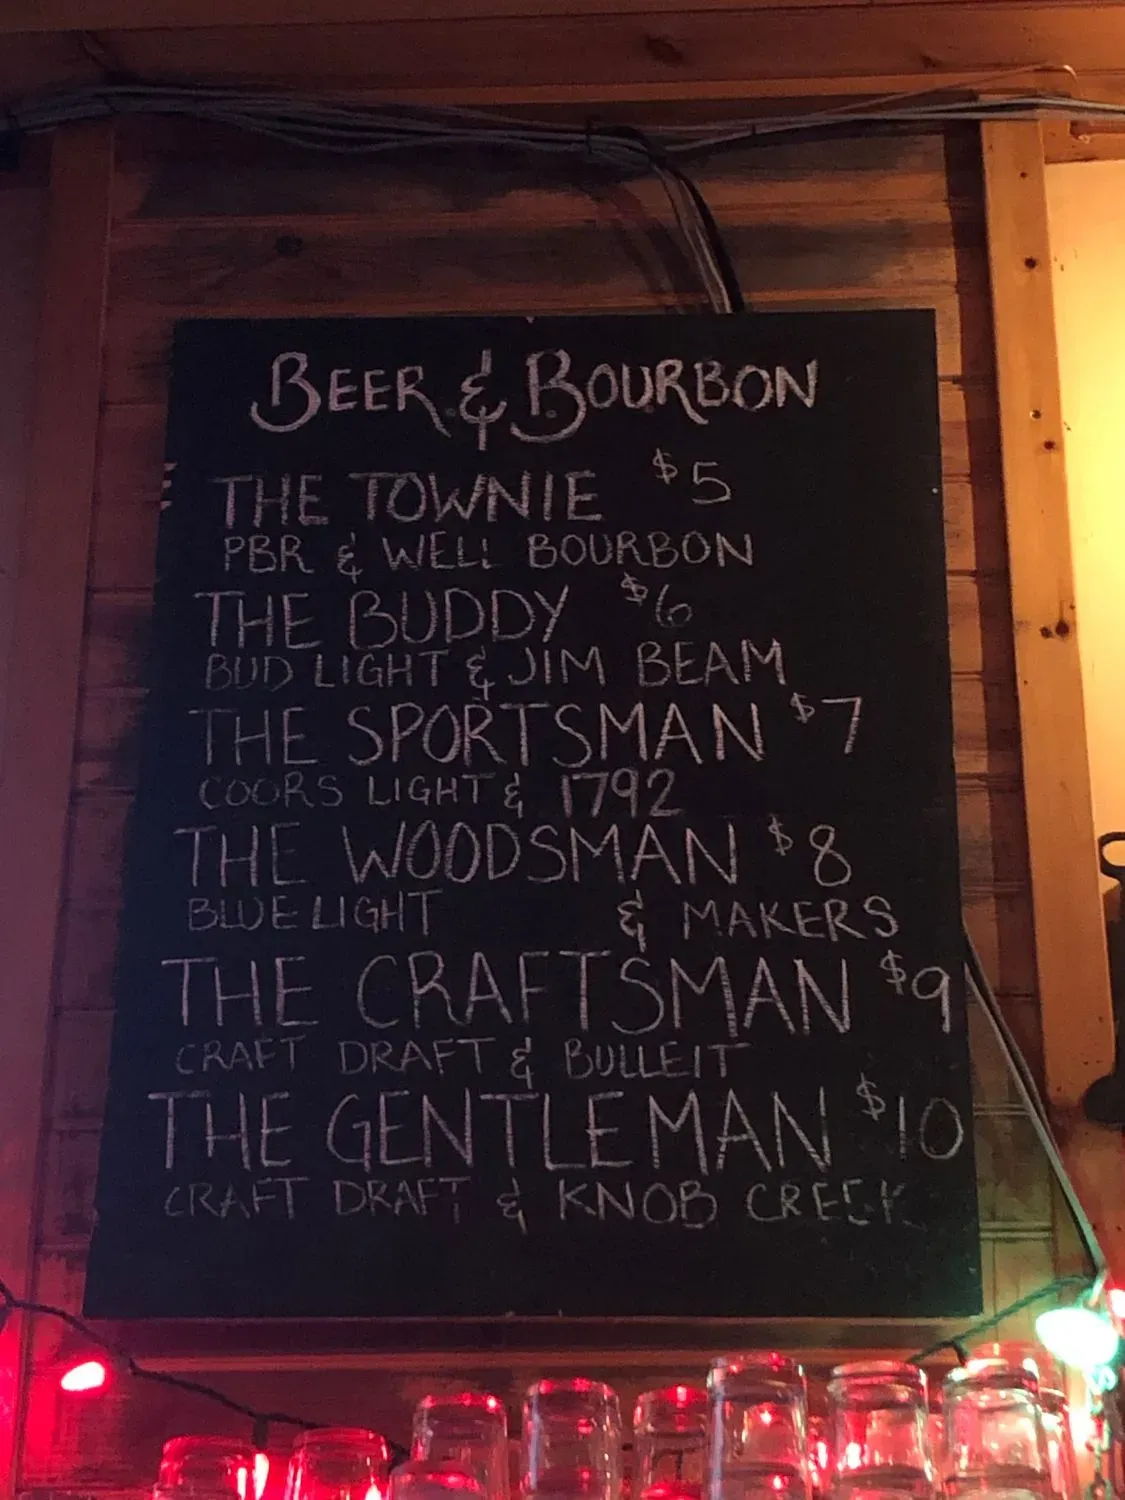 BEER & BOURBON
THE TOWNIE $5
PBR & WELL BOURBON
THE BUDDY $6
BUD LIGHT & JIM BEAM
THE SPORTSMAN $7
COORS LIGHT & 1792
THE WOODSMAN $8
BLUE LIGHT & MAKERS
THE CRAFTSMAN $9
CRAFT DRAFT & BULLEIT
THE GENTLEMAN $10
CRAFT DRAFT & KNOB CREEK